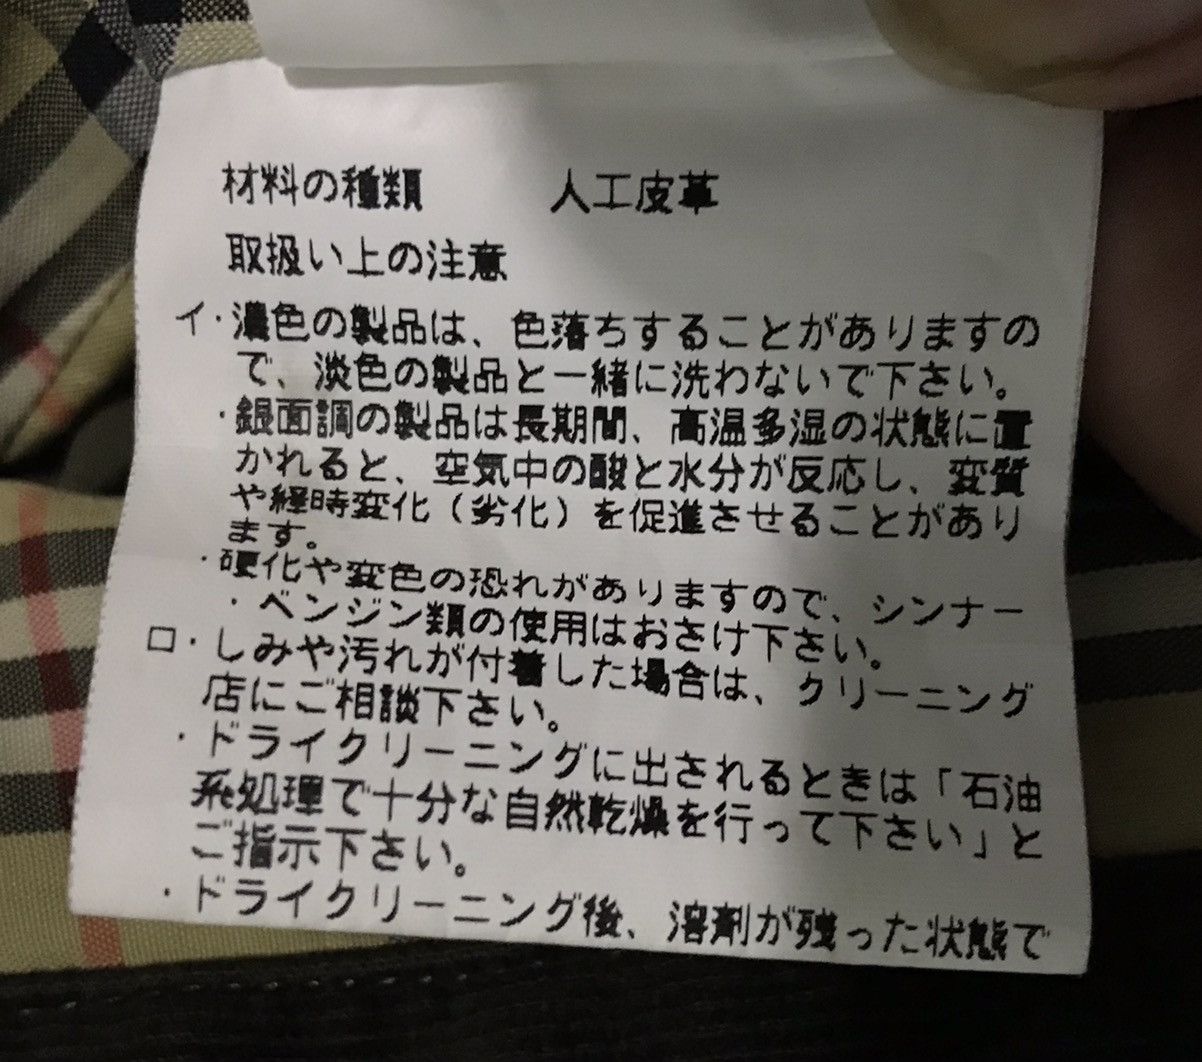 材料の種類　人工皮革
取扱い上の注意
イ・濃色の製品は、色落ちすることがありますの
で、淡色の製品と一緒に洗わないで下さい。
・銀面調の製品は長期間、高温多湿の状態に置
かれると、空気中の酸と水分が反応し、変質
や経時変化（劣化）を促進させることがあり
ます。
・硬化や変色の恐れがありますので、シンナー
・ベンジン類の使用はおさけ下さい。
ロ・しみや汚れが付着した場合は、クリーニング
店にご相談下さい。
・ドライクリーニングに出されるときは「石油
系処理で十分な自然乾燥を行って下さい」と
ご指示下さい。
・ドライクリーニング後、溶剤が残った状態で